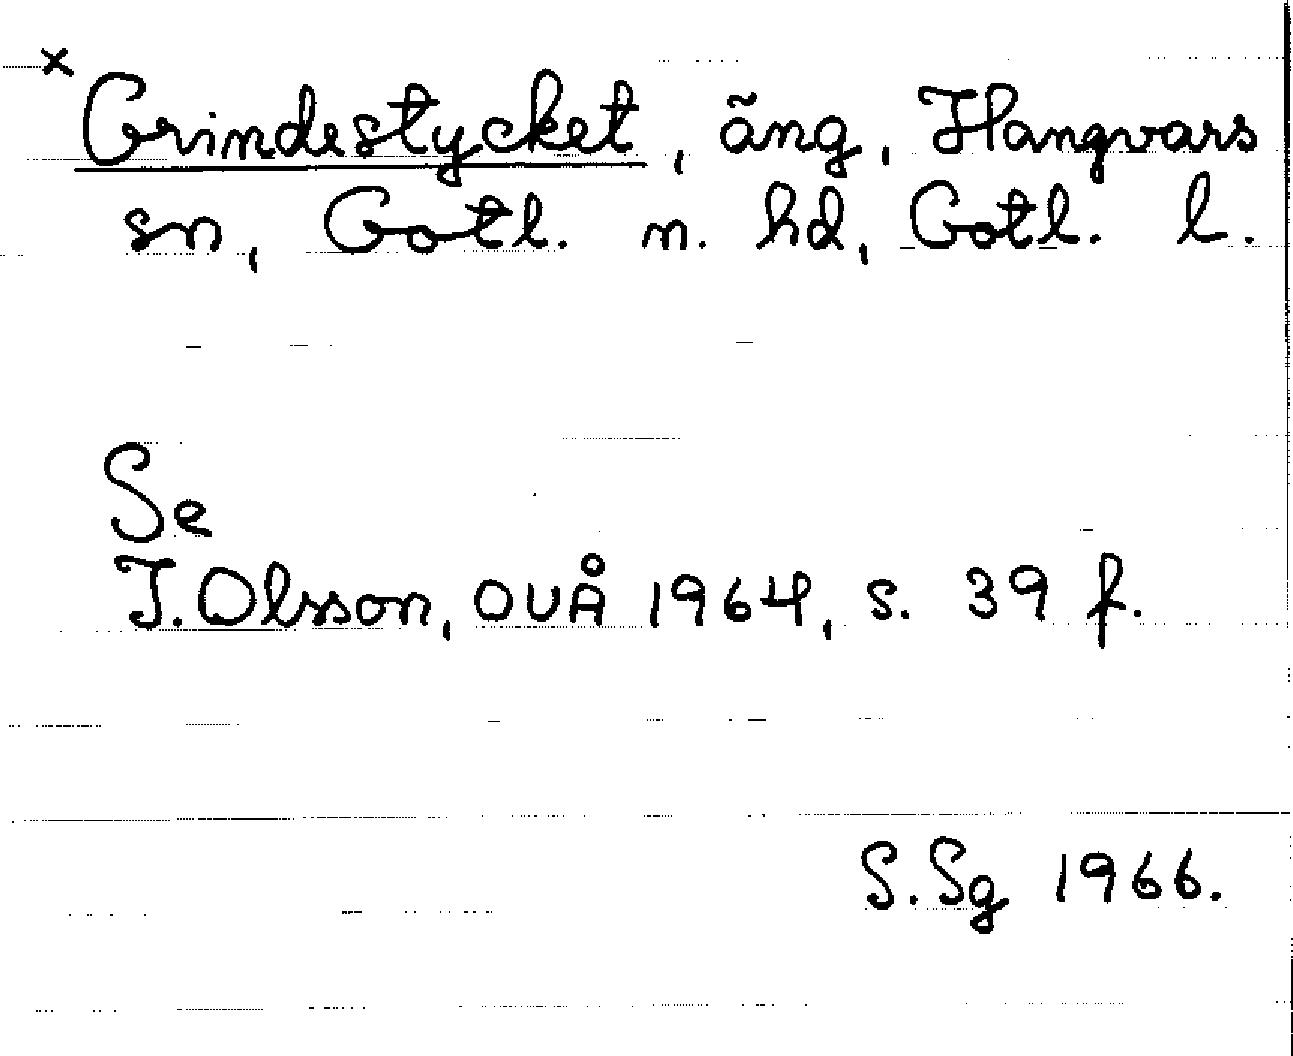 × Grindestycket, äng, Hangvars
sn, Gotl. n. hd, Gotl. l.
Se
I. Olsson, OUÅ 1964, s. 39 f.
S. Sg 1966.